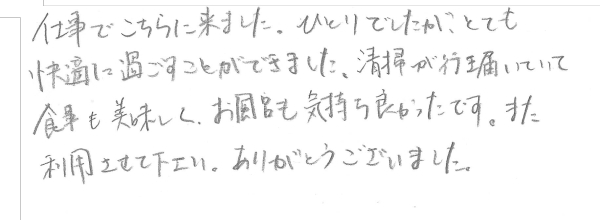 仕事でこちらに来ました。ひとりでしたが、とても
快適に過ごすことができました、清掃が行き届いていて
食事も美味しく、お風呂も気持ち良かったです。また
利用させて下さい。ありがとうございました。